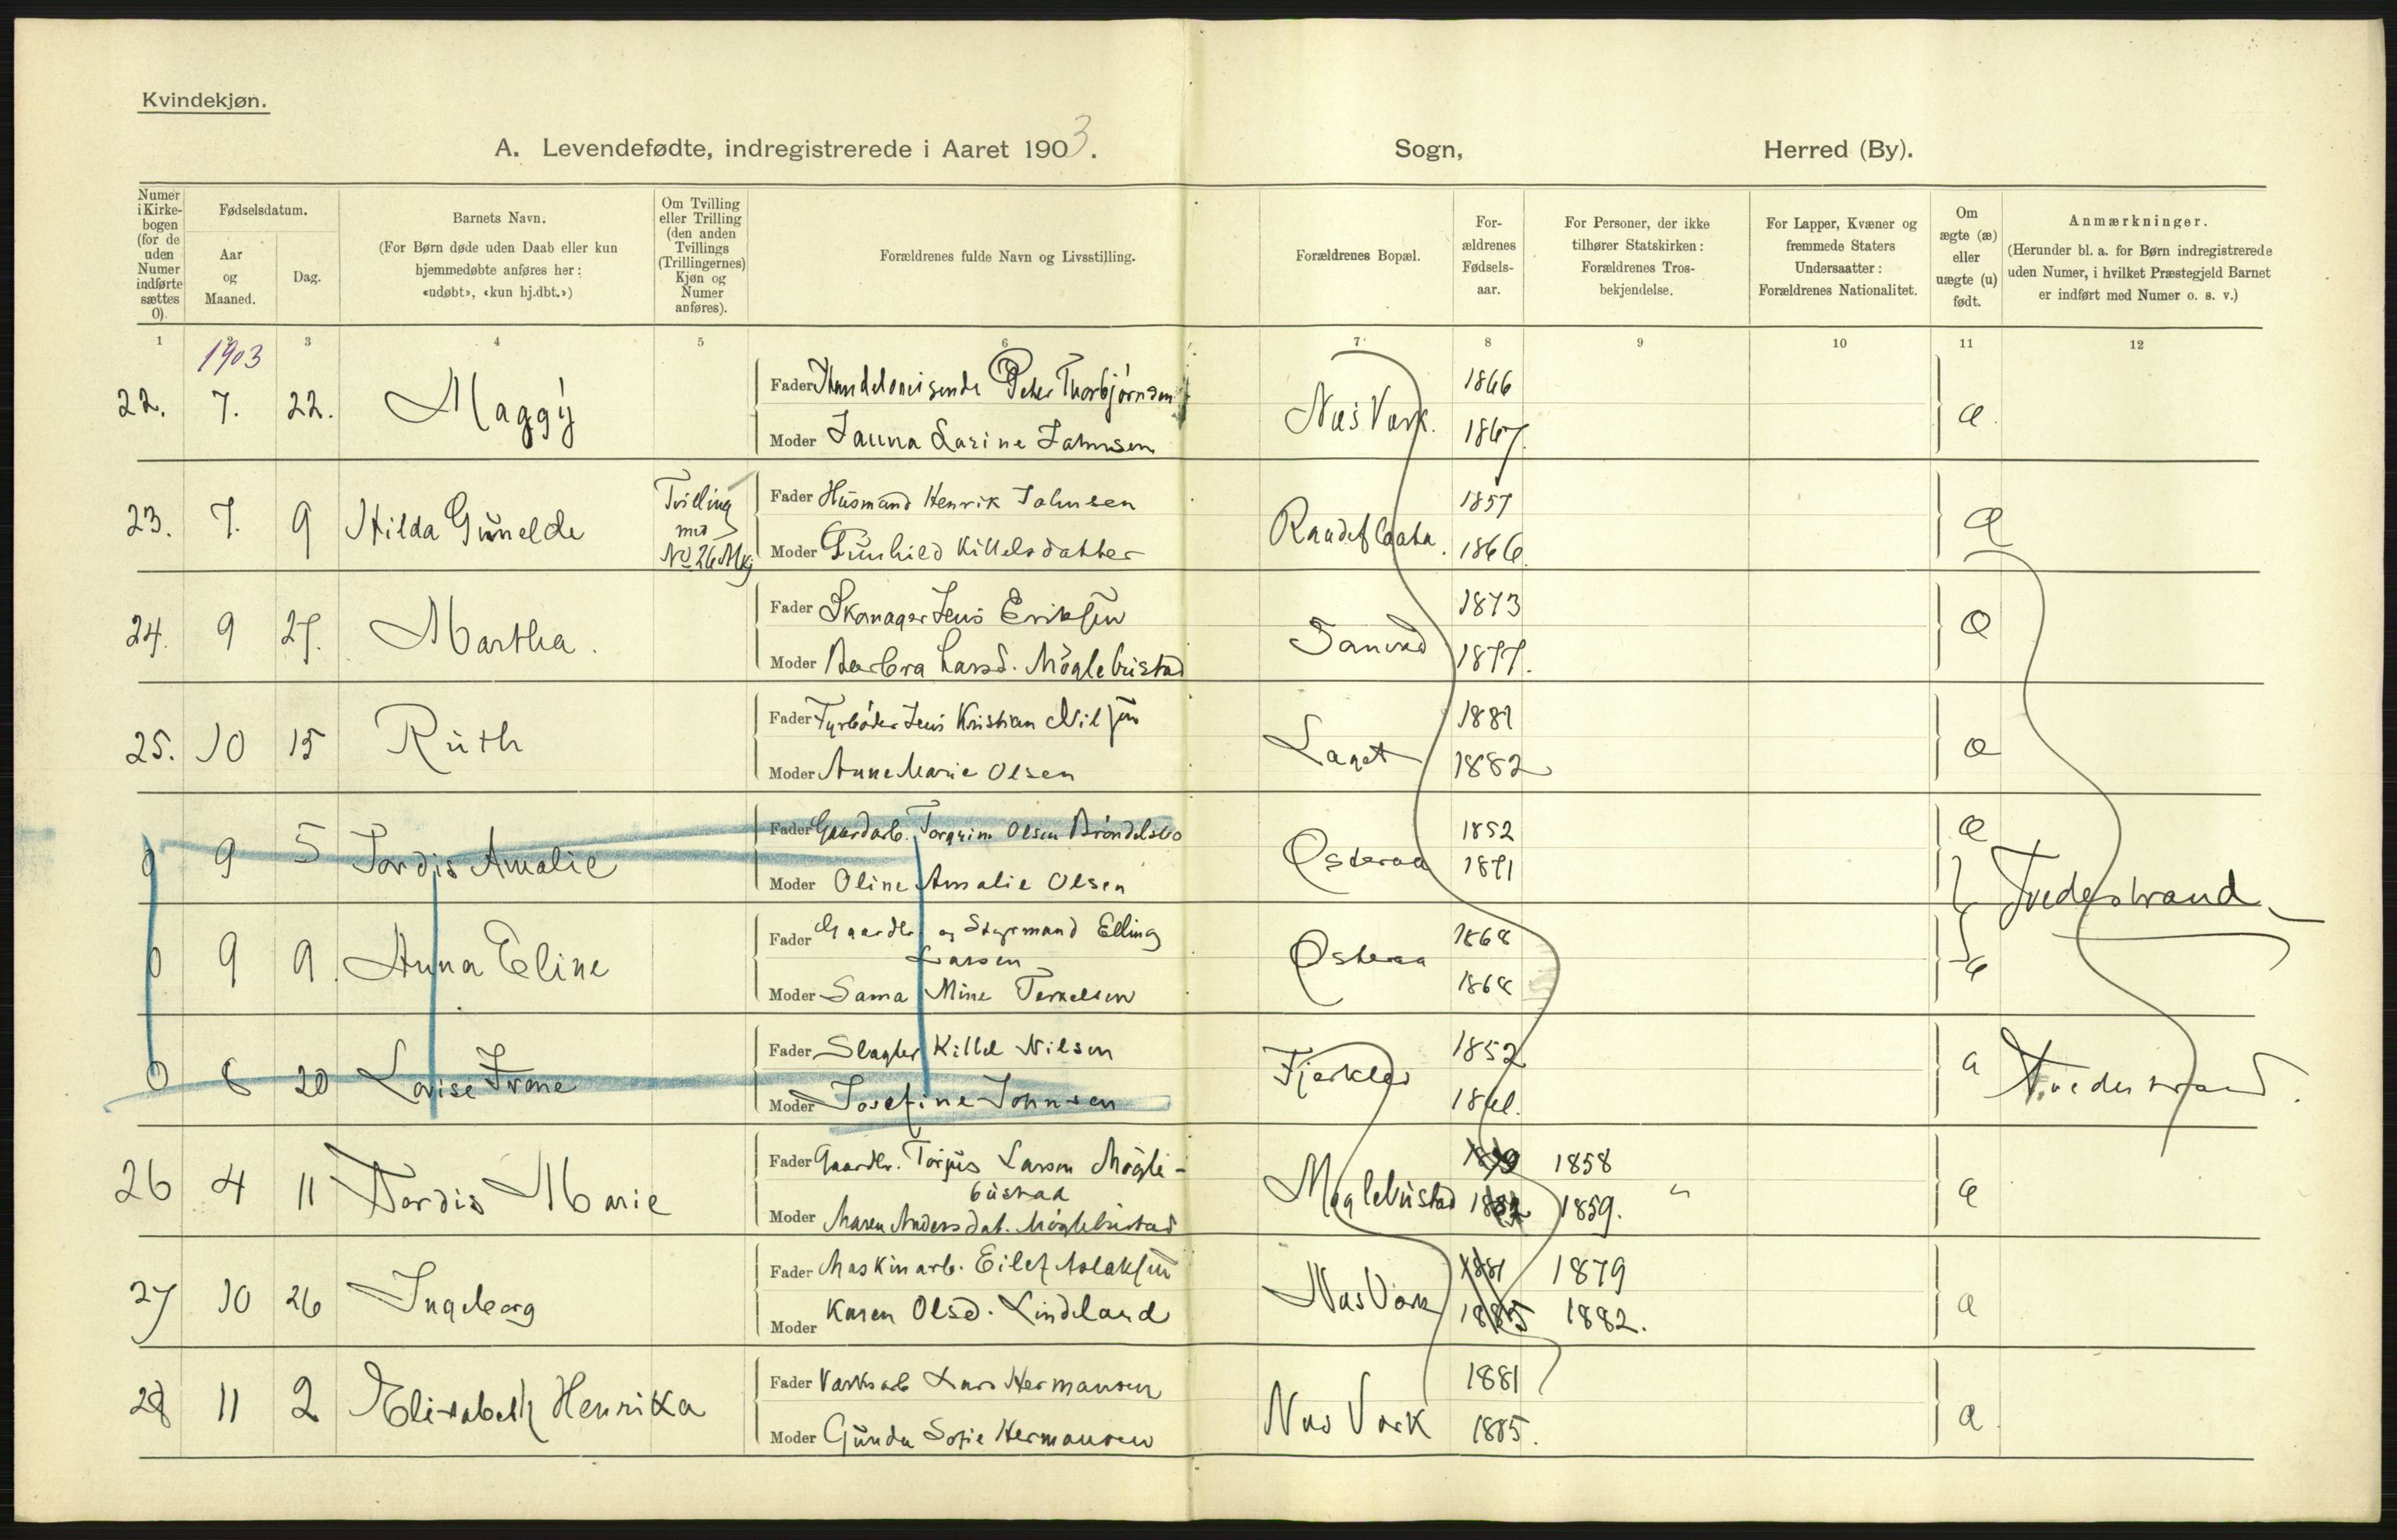 Kvindekjøn.
A. Levendefødte, indregistrerede i Aaret 1903. Sogn, Herred (By).
Numer i Kirkebogen (for de uden Numer indførte sættes 0).
Fødselsdatum.
Aar og Maaned.
Dag.
Barnets Navn.
(For Børn døde uden Daab eller kun hjemmedøbte anføres her: «udøbt», «kun hj.dbt.»)
Om Tvilling eller Trilling (den anden Tvillings (Trillingernes) Kjøn og Numer anføres).
Forældrenes fulde Navn og Livsstilling.
Forældrenes Bopæl.
Forældrenes Fødselsaar.
For Personer, der ikke tilhører Statskirken: Forældrenes Trosbekjendelse.
For Lapper, Kvæner og fremmede Staters Undersaatter: Forældrenes Nationalitet.
Om ægte (æ) eller uægte (u) født.
Anmærkninger.
(Herunder bl. a. for Børn indregistrerede uden Numer, i hvilket Præstegjeld Barnet er indført med Numer o. s. v.)
1 2 3 4 5 6 7 8 9 10 11 12
1903
22. 7. 22. Maggy Fader Handelsreisende Peter Thorbjørnsen Næs Værk. 1866 æ.
Moder Janna Larine Jahnsen 1867.
23. 7. 9 Hilda Gunelde Tvilling med No 26 Mkj Fader Husmand Henrik Johnsen 1857 æ
Moder Gunhild Kittelsdatter 1866.
24. 9 27. Martha. Fader Skomager Jens Eriksen 1873 æ
Moder Barbra Larsd. Møglebustad 1877.
25. 10 15 Ruth Fader Fyrbøder Jens Kristian Nilsen Laget 1881 æ
Moder Anne Marie Olsen 1882
0 9 5 Tordis Amalie Fader Gaardarb. Torgrim Olsen Brøndelsbo Osteraa 1852 æ
Moder Oline Amalie Olsen 1871 Tvedestrand
0 9 9. Anna Eline Fader Gaardbr. og Styrmand Elling Larsen Osteraa 1868 æ
Moder Sama Mine Terkelsen 1868
0 6 20 Lovise Irene Fader Slagter Kittel Nilsen 1852 æ Tvedestrand.
Moder Josefine Johnsen 1861.
26 4 11 Tordis Marie Fader Gaardbr. Torjus Larsen Møglebustad Møglebustad 1858 æ
Moder Maren Andersdat. Møglebustad 1859. "
27 10 26 Ingeborg Fader Maskinarb. Eilef Aslaksen Næs Værk 1881 1879 æ
Moder Karen Olsd. Lindeland 1885 1882.
28 11 2 Elisabeth Henrika Fader Værksarb Lars Hermansen Næs Værk 1881 æ.
Moder Gunda Sofie Hermansen 1885.